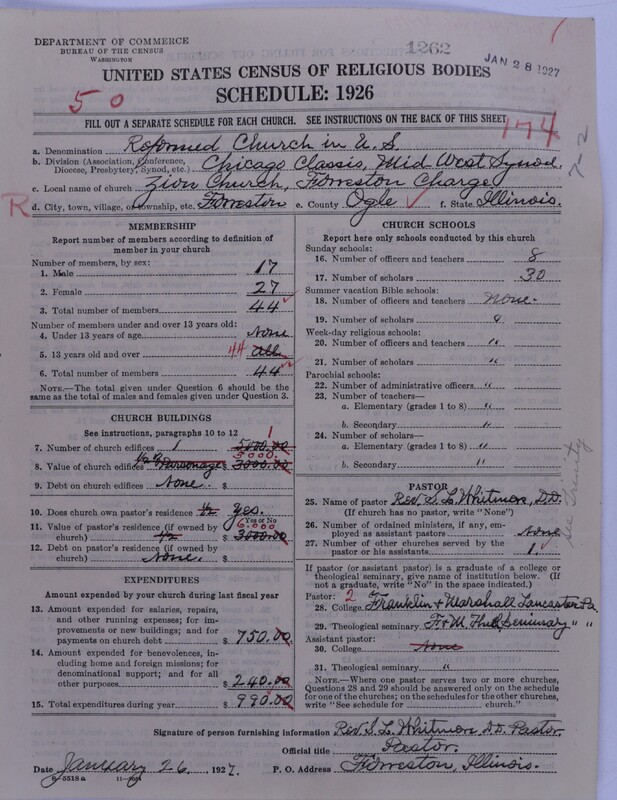 DEPARTMENT OF COMMERCE
BUREAU OF THE CENSUS
WASHINGTON
1262
JAN 28 1927
UNITED STATES CENSUS OF RELIGIOUS BODIES
SCHEDULE: 1926
50
FILL OUT A SEPARATE SCHEDULE FOR EACH CHURCH. SEE INSTRUCTIONS ON THE BACK OF THIS SHEET
174
a. Denomination Reformed Church in U.S.
b. Division (Association, Conference, Diocese, Presbytery, Synod, etc.) Chicago Classis, Mid West Synod.
c. Local name of church Zion Church, Forreston Charge
R d. City, town, village, or township, etc. Forreston e. County Ogle f. State Illinois.
MEMBERSHIP
Report number of members according to definition of
member in your church
Number of members, by sex:
1. Male 17
2. Female 27
3. Total number of members 44
Number of members under and over 13 years old:
4. Under 13 years of age None
5. 13 years old and over 44 all
6. Total number of members 44
NOTE.—The total given under Question 6 should be
same as the total of males and females given under Question 3.
CHURCH BUILDINGS
See instructions, paragraphs 10 to 12
7. Number of church edifices 1 5000.00 1
8. Value of church edifices Parsonage 3000.00
9. Debt on church edifices None. $
10. Does church own pastor's residence 1/2 yes.
Yes or No
11. Value of pastor's residence (if owned by
church) 1/2 $ 3000.00 6,000
12. Debt on pastor's residence (if owned by
church) None. $
EXPENDITURES
Amount expended by your church during last fiscal year
13. Amount expended for salaries, repairs,
and other running expenses; for im-
provements or new buildings; and for
payments on church debt $ 750.00
14. Amount expended for benevolences,
including home and foreign missions; for
denominational support; and for all
other purposes $ 240.00
15. Total expenditures during year $ 990.00
CHURCH SCHOOLS
Report here only schools conducted by this church
Sunday schools:
16. Number of officers and teachers 8
17. Number of scholars 30
Summer vacation Bible schools:
18. Number of officers and teachers None.
19. Number of scholars "
Week-day religious schools:
20. Number of officers and teachers "
21. Number of scholars "
Parochial schools:
22. Number of administrative officers "
23. Number of teachers—
a. Elementary (grades 1 to 8) "
b. Secondary "
24. Number of scholars—
a. Elementary (grades 1 to 8) "
b. Secondary "
See Trinity
PASTOR
25. Name of pastor Rev. S. L. Whitmore, D.D.
(If church has no pastor, write "None")
26. Number of ordained ministers, if any, em-
ployed as assistant pastors None
27. Number of other churches served by the
pastor or his assistants 1.
If pastor (or assistant pastor) is a graduate of a college or
theological seminary, give name of institution below. (If
not a graduate, write "No" in the space indicated.)
Pastor: 2
28. College Franklin & Marshall Lancaster Pa.
29. Theological seminary F. & M. Theol. Seminary " "
Assistant pastor:
30. College None
31. Theological seminary "
NOTE.—Where one pastor serves two or more churches,
Questions 28 and 29 should be answered only on the schedule
for one of the churches; on the schedules for the other churches,
write "See schedule for church."
Signature of person furnishing information Rev. S. L. Whitmore D.D. Pastor.
Official title Pastor.
Date January 26, 1927. P. O. Address Forreston, Illinois.